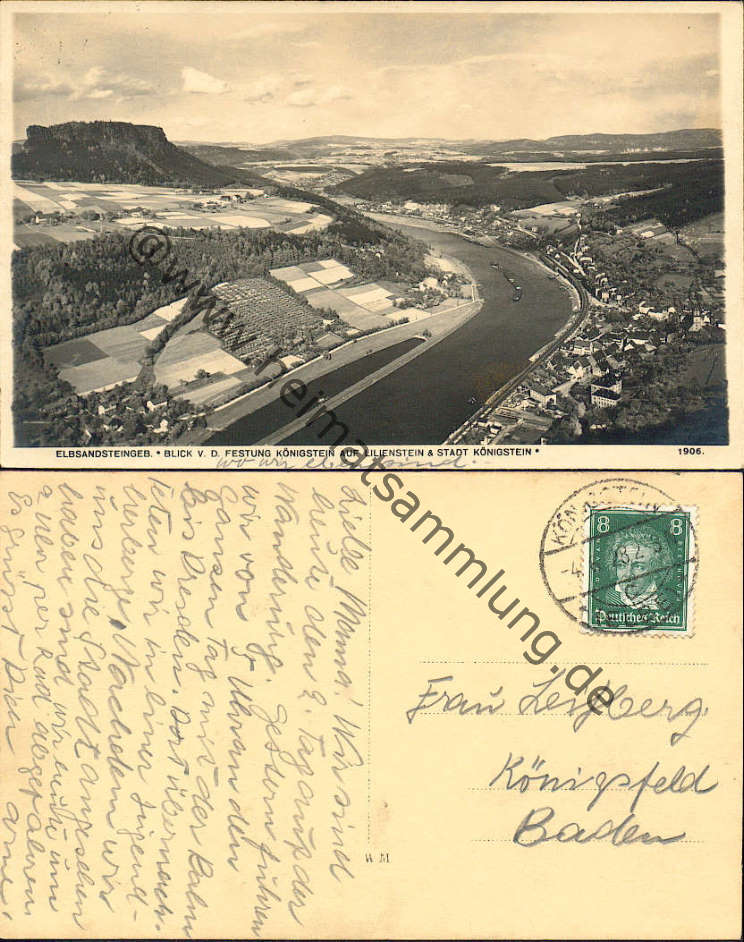 ELBSANDSTEINGEB. * BLICK V. D. FESTUNG KÖNIGSTEIN AUF LILIENSTEIN & STADT KÖNIGSTEIN *
1906.
wo wir eben sind.
@ www.heimatsammlung.de
Liebe Mama! Wir sind
heute den 2. Tag auf der
Wanderung. Gestern fuhren
wir von Uhr an den
ganzen Tag mit der Bahn
bis Dresden. Dort übernach-
teten wir in einer Jugend-
herberge. Nachdem wir
uns die Stadt angesehen
haben sind wir heute um
2 Uhr per Rad abgefahren.
Es grüsst Dich
KÖNIGSTEIN
8 8
Deutsches Reich
Frau Leighberg
Königsfeld
Baden